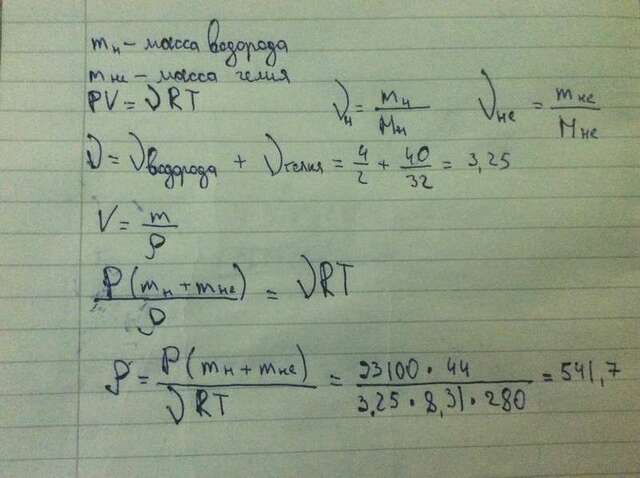 mн - масса водорода
mнe - масса гелия
PV = νRT νн = mн/Mн νнe = mнe/Mнe
ν = νводорода + νгелия = 4/2 + 40/32 = 3,25
V = m/ρ
P(mн + mнe)/ρ = νRT
ρ = P(mн + mнe)/νRT = 93100 · 44/3,25 · 8,31 · 280 = 541,7